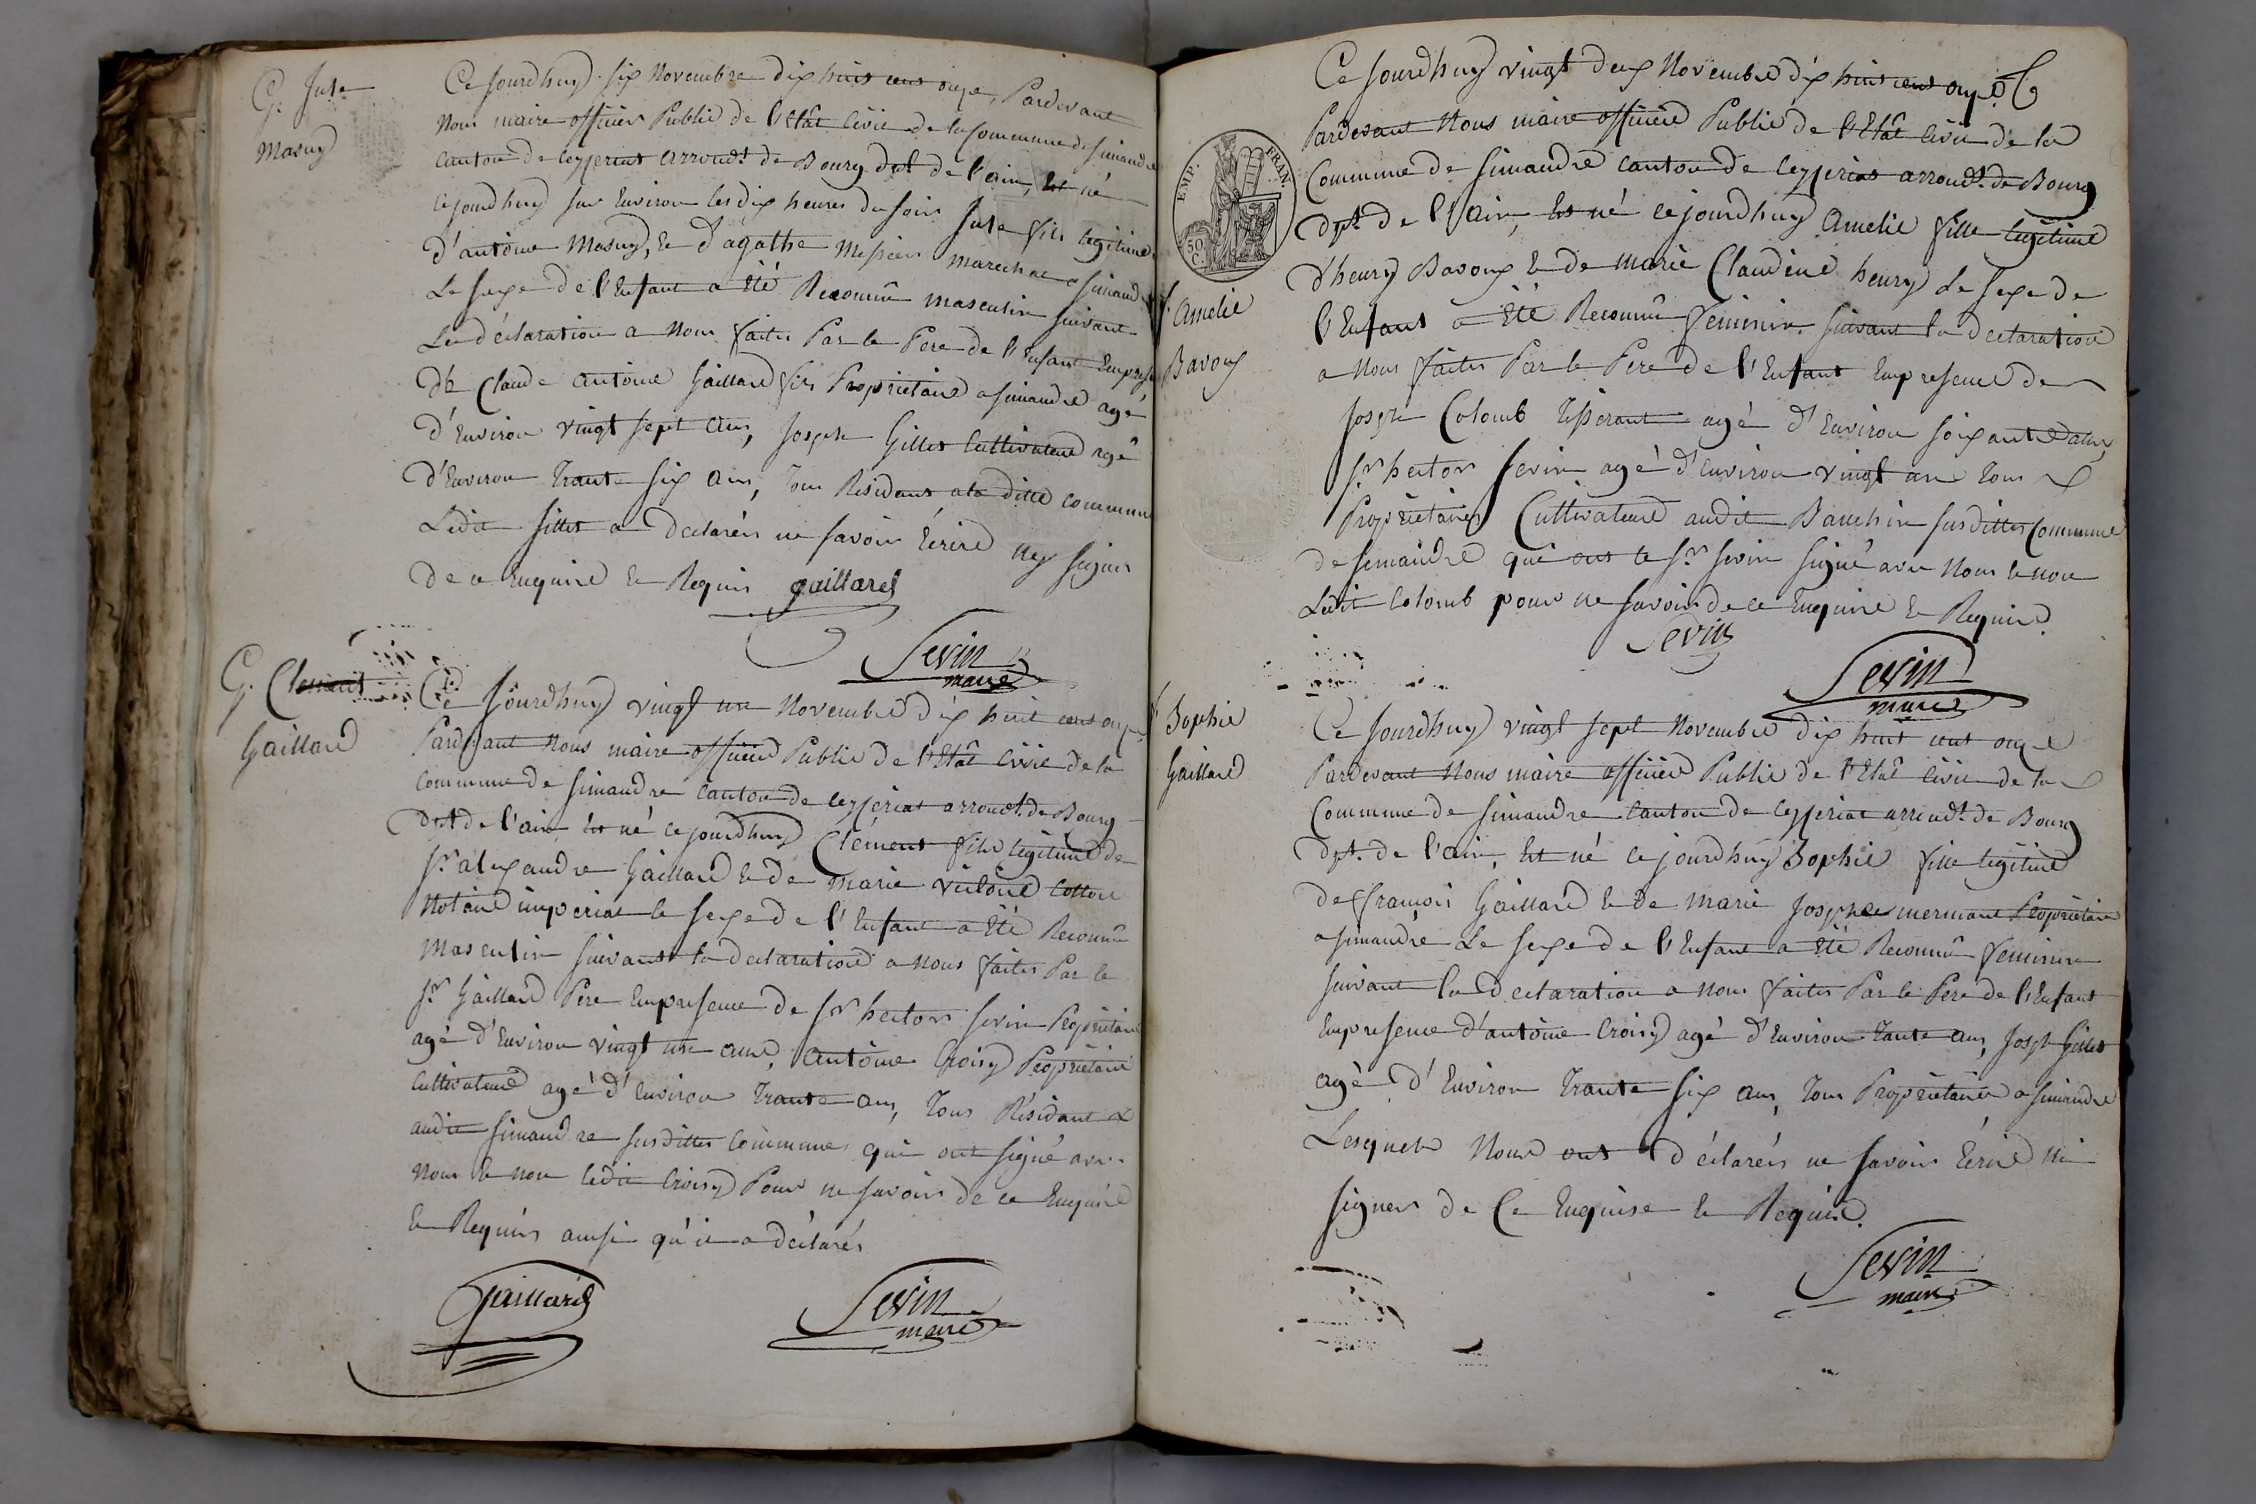 G. Jule
Masuy
Ce jourdhuy six Novembre dix huit cent onze, Pardevant
Nous maire officier Public de l'Etât Civil de la Commune de simandre
canton de ceyzeriat arrond.t de Bourg dpt de l'ain, Est né
cejourdhuy sur Environ les dix heures du soir Jule fils legitime
d'antoine Masuy, & d'agathe Messier marechal a simandre
Le sexe de l'Enfant a Eté Reconnû masculin suivant
La déclaration a Nous faite Par le Pere de l'Enfant Enpresence
de Claude antoine Gaillard fils Propriétaire a simandre agé
d'Environ vingt sept ans, Joseph Gillet Cultivateur agé
d'Environ Trante six ans, Tous Résidant a la ditte commune
Ledit Gillet a declarés ne savoir Ecrire ny signer
de ce Enquire & Requis gaillard
Sevin
maire
G. Clement
Gaillard
Ce jourdhuy vingt un Novembre dix huit cent onze
Pardevant Nous maire officier Public de l'Etât Civil de la
commune de simandre canton de ceyzeriat arrond.t de Bourg
dpt de l'ain Est né ce jourdhuy Clément fils legitime de
s.r alexandre Gaillard & de marie victoire Cotton
Notaire imperial le sexe de l'Enfant a Eté Reconnû
masculin suivant la declaration a nous faite Par le
s.r Gaillard Pere Enpresence de s.r hector sevin Propriétaire
agé d'Environ vingt un ans, antoine Croisy Propriétaire
Cultivateur agé d'Environ Trante ans, Tous Résidant
audit simandre susditte Commune, qui ont signé avec
Nous & non ledit Croisy Pour ne savoir de ce Enquire
& Requis ainsi qu'il a déclarés
Gaillard
Sevin
maire
EMP. FRAN.
50
C.
f. Amelie
Bavoux
Ce jourdhuy vingt deux Novembre dix huit cent onze
Pardevant Nous maire officier Public de l'Etât Civil de la
Commune de simandre canton de ceyzeriat arrond.t de Bourg
dpt. de l'ain, Est né cejourdhuy Amelie fille legitime
d'henry Bavoux & de marie Claudine henry Le sexe de
l'Enfant a Eté Reconnû feminin suivant la declaration
a Nous faite Par le Pere de l'Enfant Enpresence de
Joseph Colomb Tisserant agé d'Environ soixante ans,
s.r hector sevin agé d'Environ vingt un Tous
Propriétaires Cultivateur audit Banchin susdittes Commune
de simandre qui ont le s.r sevin signé avec Nous & non
Ledit Colomb pour ne savoir de ce Enquire & Requis.
Sevin
Sevin
maire
f. Sophie
Gaillard
Ce jourdhuy vingt sept Novembre dix huit cent onze
Pardevant Nous maire officier Public de l'Etât Civil de la
Commune de simandre canton de ceyzeriat arrond.t de Bourg
dpt. de l'ain, Est né ce jourdhuy Sophie fille legitime
de françois Gaillard & de marie Josephe mermant Propriétaire
a simandre Le sexe de l'Enfant a Eté Reconnû feminin
suivant la declaration a nous faite Par le Pere de l'Enfant
Enpresence d'antoine Croisy agé d'Environ Tante ans, Joseph Gillet
agé d'Environ Trante six ans, Tous Propriétaires a simandre
Lesquels Nous ont déclarés ne savoir Ecrire ni
signer de Ce Enquise & Requise.
Sevin
maire